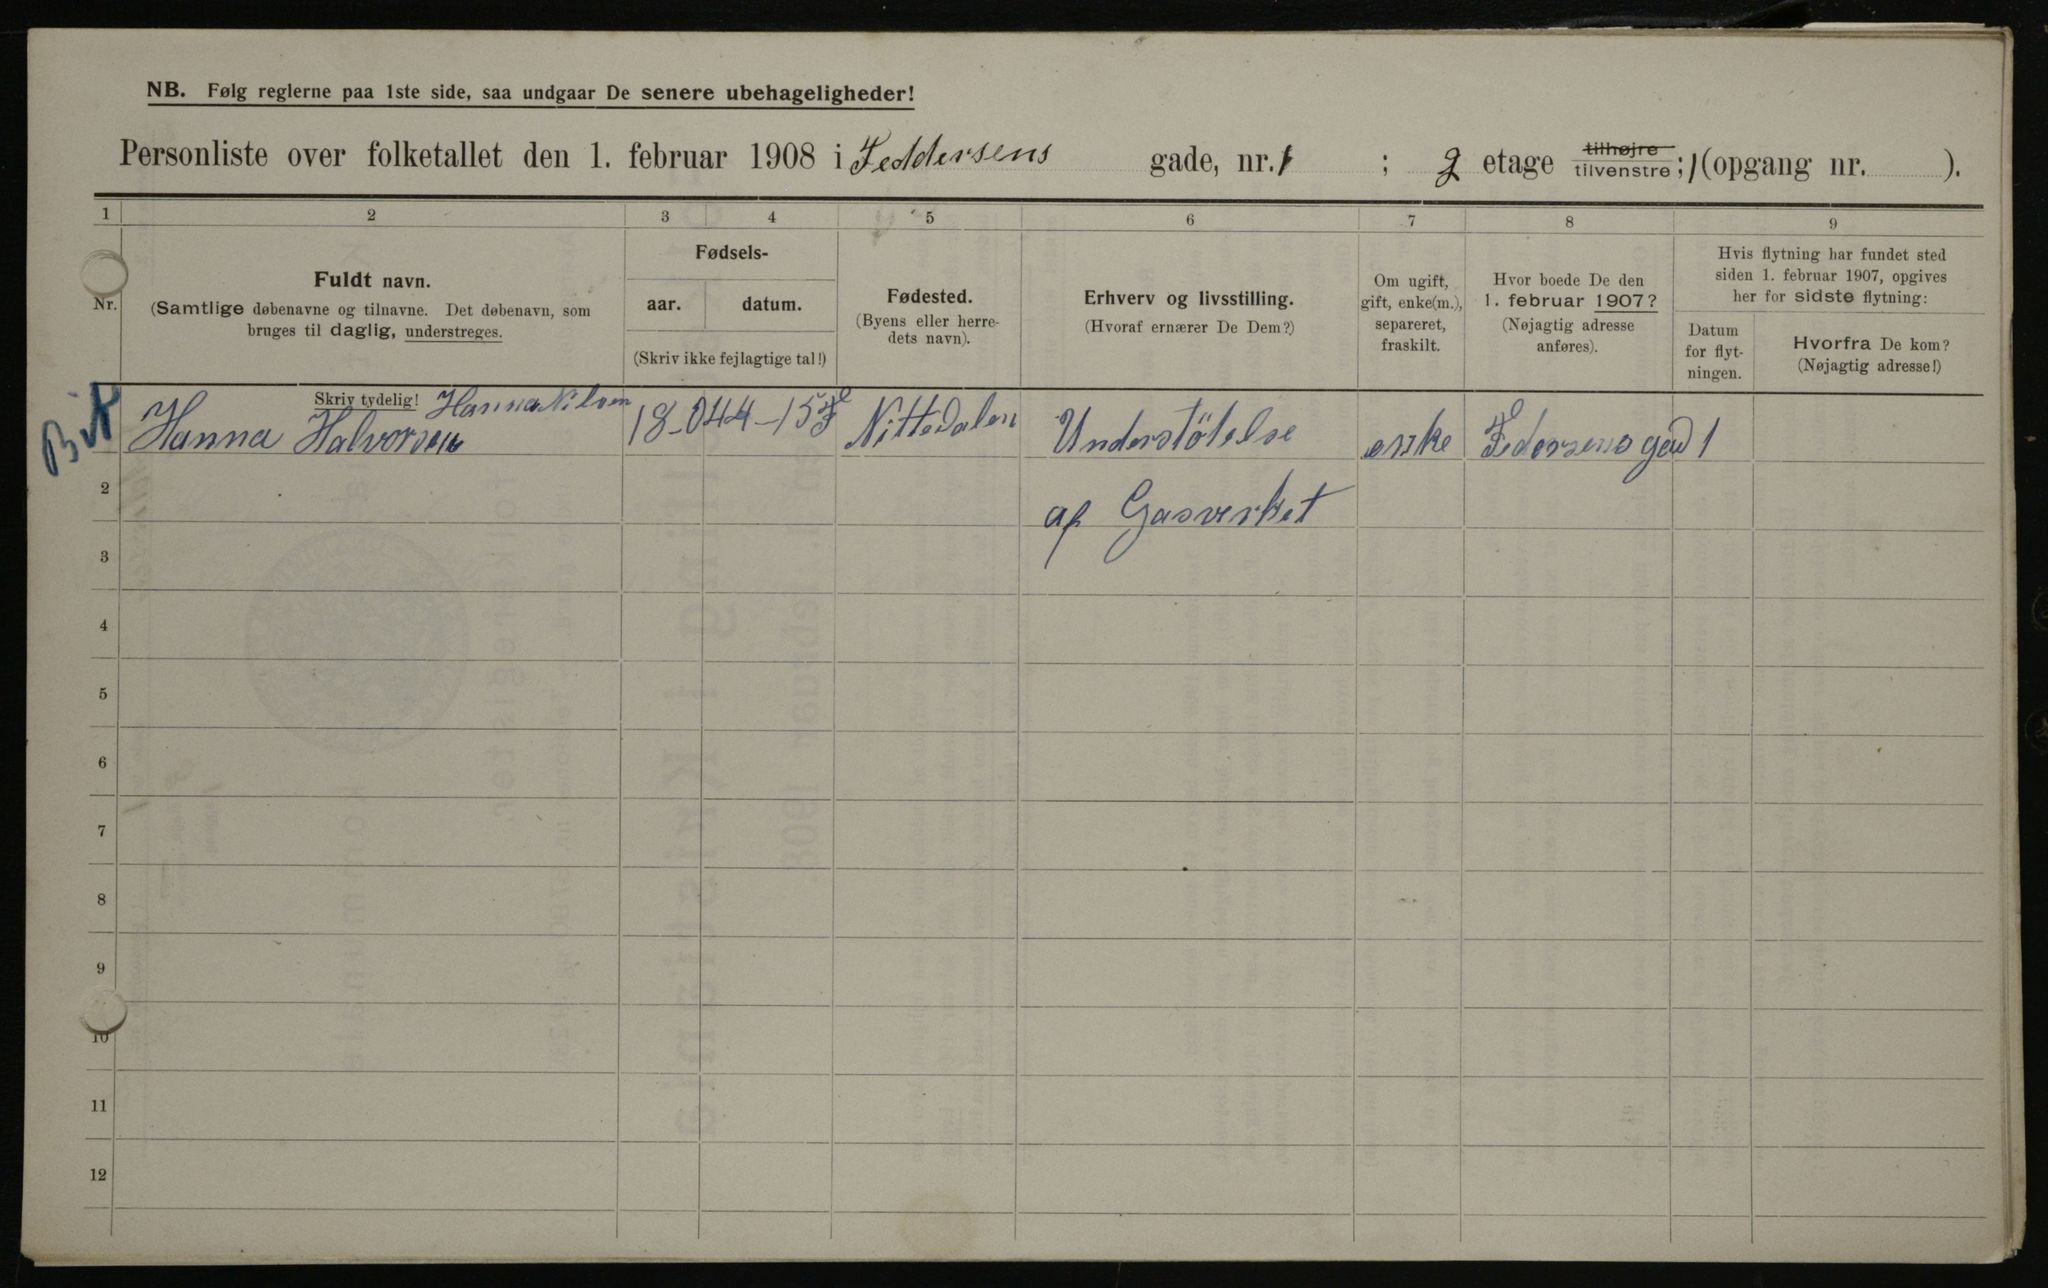 NB. Følg reglerne paa 1ste side, saa undgaar De senere ubehageligheder!
Personliste over folketallet den 1. februar 1908 i Feddersens gade, nr. 1 ; 2 etage tilhøjre tilvenstre; 1 (opgang nr. ).
1 2 3 4 5 6 7 8 9
Nr.
Fuldt navn.
(Samtlige døbenavne og tilnavne. Det døbenavn, som
bruges til daglig, understreges.
Fødsels-
aar. datum.
(Skriv ikke fejlagtige tal!)
Fødested.
(Byens eller herre-
dets navn).
Erhverv og livsstilling.
(Hvoraf ernærer De Dem?)
Om ugift,
gift, enke(m.),
separeret,
fraskilt.
Hvor boede De den
1. februar 1907?
(Nøjagtig adresse
anføres).
Hvis flytning har fundet sted
siden 1. februar 1907, opgives
her for sidste flytning:
Datum
for flyt-
ningen.
Hvorfra De kom?
(Nøjagtig adresse!)
Skriv tydelig! Hanna Nilsen
Hanna Halvorsen 18-044-15 Nittedalen Understötelse enke Federsens gad 1
2 af Gasverket
3
4
5
6
7
8
9
10
11
12